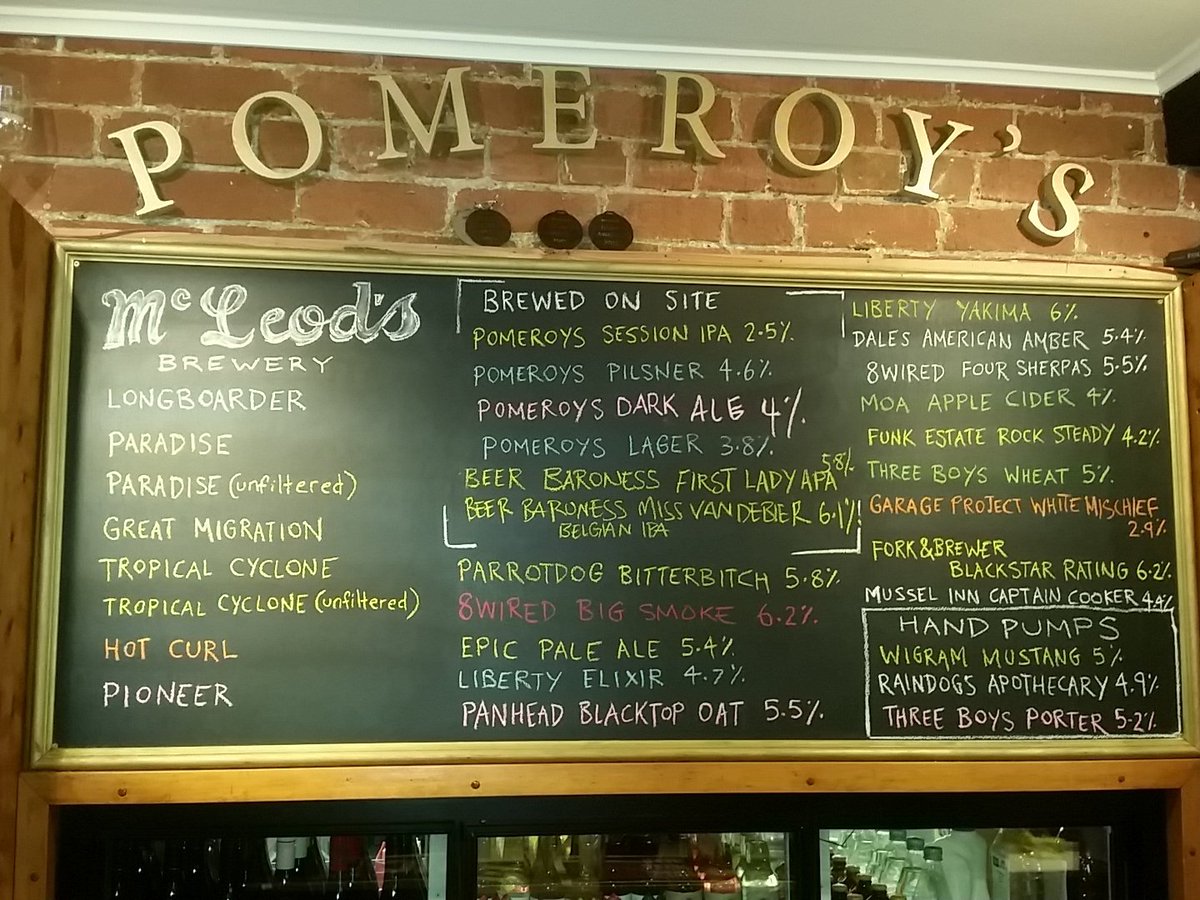 POMEROY'S
McLeod's
BREWERY
LONGBOARDER
PARADISE
PARADISE (unfiltered)
GREAT MIGRATION
TROPICAL CYCLONE
TROPICAL CYCLONE (unfiltered)
HOT CURL
PIONEER
BREWED ON SITE
POMEROYS SESSION IPA 2.5%
POMEROYS PILSNER 4.6%
POMEROYS DARK ALE 4%
POMEROYS LAGER 3.8%
BEER BARONESS FIRST LADY APA 5.8%
BEER BARONESS MISS VANDEBIER 6.1%
BELGIAN IPA
PARROTDOG BITTERBITCH 5.8%
8WIRED BIG SMOKE 6.2%
EPIC PALE ALE 5.4%
LIBERTY ELIXIR 4.7%
PANHEAD BLACKTOP OAT 5.5%
LIBERTY YAKIMA 6%
DALES AMERICAN AMBER 5.4%
8WIRED FOUR SHERPAS 5.5%
MOA APPLE CIDER 4%
FUNK ESTATE ROCK STEADY 4.2%
THREE BOYS WHEAT 5%
GARAGE PROJECT WHITE MISCHIEF
2.9%
FORK&BREWER
BLACKSTAR RATING 6.2%
MUSSEL INN CAPTAIN COOKER 4.4%
HAND PUMPS
WIGRAM MUSTANG 5%
RAINDOGS APOTHECARY 4.9%
THREE BOYS PORTER 5.2%